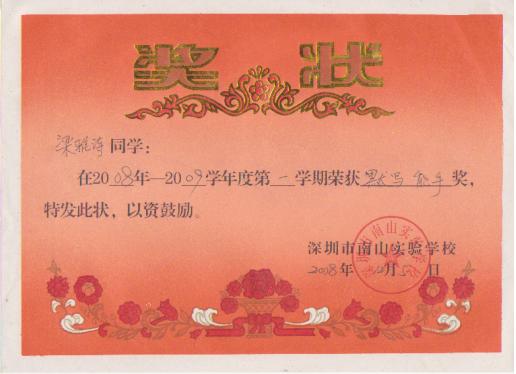 奖状
梁雅诗同学：
在2008年—2009学年度第一学期荣获默写能手奖，
特发此状，以资鼓励。
深圳市南山实验学校
2008年 月 日